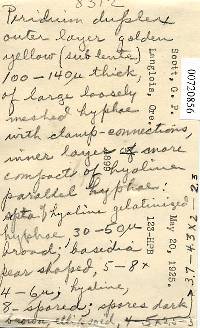 8312
Peridium duplex
outer layer golden
yellow (sub lente)
100 - 140µ thick,
of large loosely
meshed hyphae
with clamp-connections,
inner layer of more
compacts of hyaline
parallel hyphae:
septa of hyaline gelatinized
hyphae 30-50µ
broad; basidia
pear shaped, 5-8 x
4-6µ, hyaline,
8-spored; spores dark
brown, ellipsoid,
Scott, G. P.
Langlois, Ore.
May 20, 1925.
123-HPB
00720856